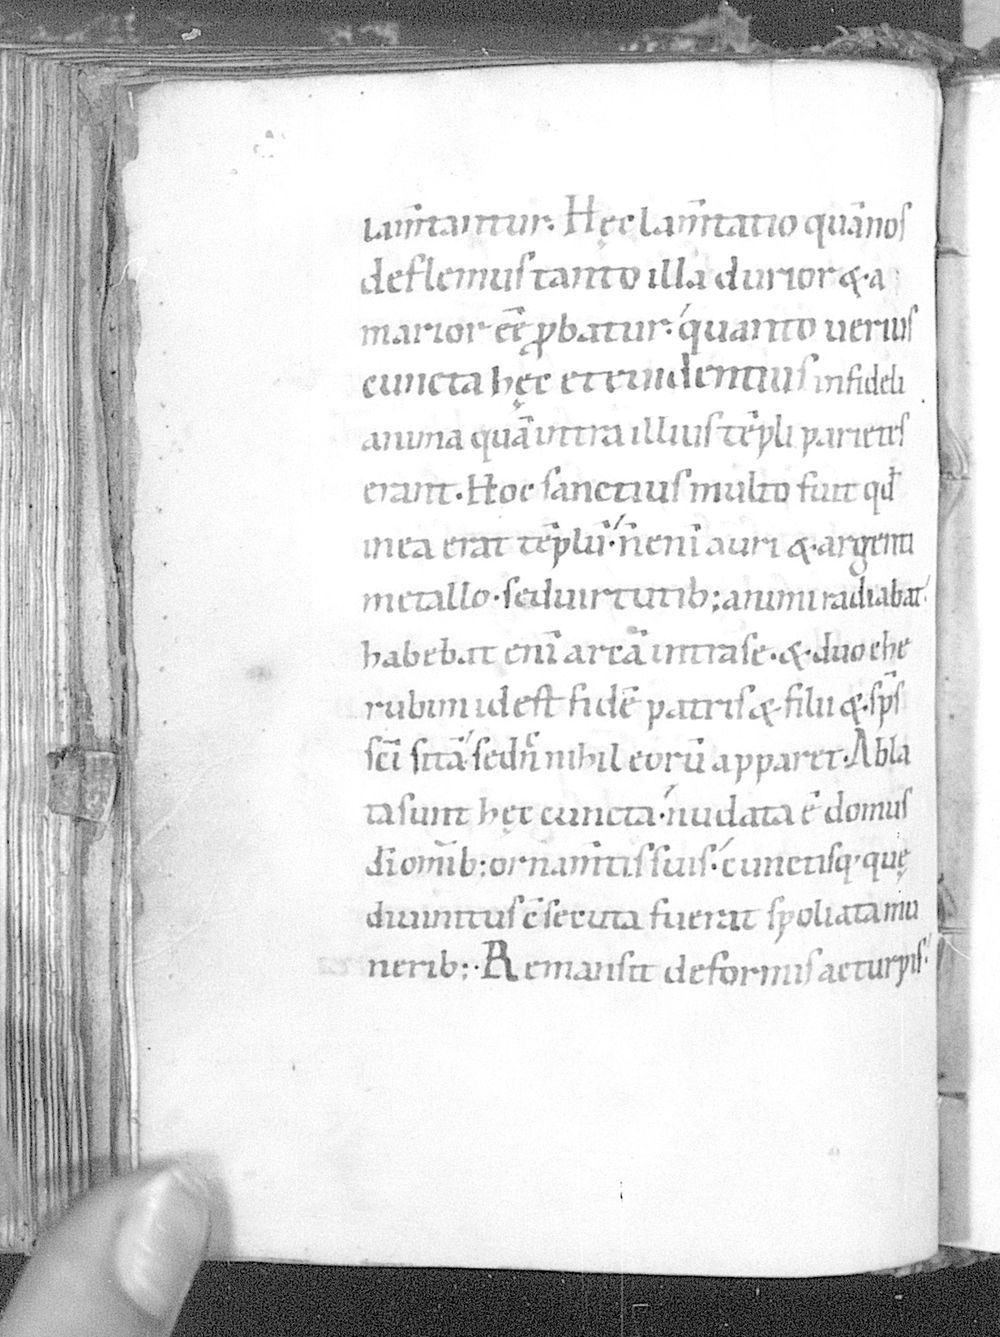 lam̅tantur. Hęc lam̅tatio quā nos
deflemus tanto illa durior &. a
marior eē̅ ꝓbatur. quanto uerius
cuncta hęc et euidentius in fideli
anima quā intra illius tēpli parietes
erant. Hoc sanctius multo fuit qđ
in ea erat tēplū. n̅ enī auri &. argenti
metallo. sed uirtutib; animi radiabat.
habebat enī arcā intra se. &. duo che
rubim id est fidē patris &. filii &. sp̅s
scī sitā. sed n̅c nihil eorū apparet. Abla
ta sunt hęc cuncta. nudata ē domus
dī om̅ib; ornam̅tis suis. cunctisq' quę
diuinitus c̅secuta fuerat spoliata mu
nerib;. Remansit deformis ac turpis.